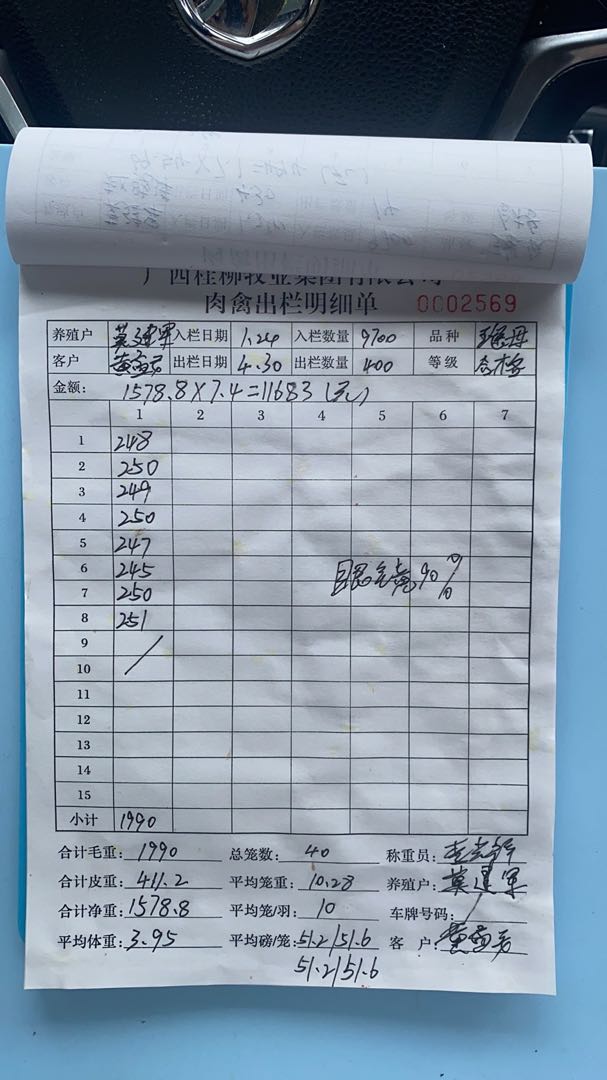 广西桂柳牧业集团有限公司
肉禽出栏明细单 0002569
养殖户 莫建军 入栏日期 1.24 入栏数量 9700 品种
客户 出栏日期 4.30 出栏数量 400 等级 合格
金额: 1578.8×7.4=11683(元)
1 2 3 4 5 6 7
1 248
2 250
3 249
4 250
5 247
6 245 90%
7 250
8 251
9
10
11
12
13
14
15
小计 1990
合计毛重: 1990 总笼数: 40 称重员:
合计皮重: 411.2 平均笼重: 10.28 养殖户: 莫建军
合计净重: 1578.8 平均笼/羽: 10 车牌号码:
平均体重: 3.95 平均磅/笼: 51.2/51.6 客户:
51.2/51.6